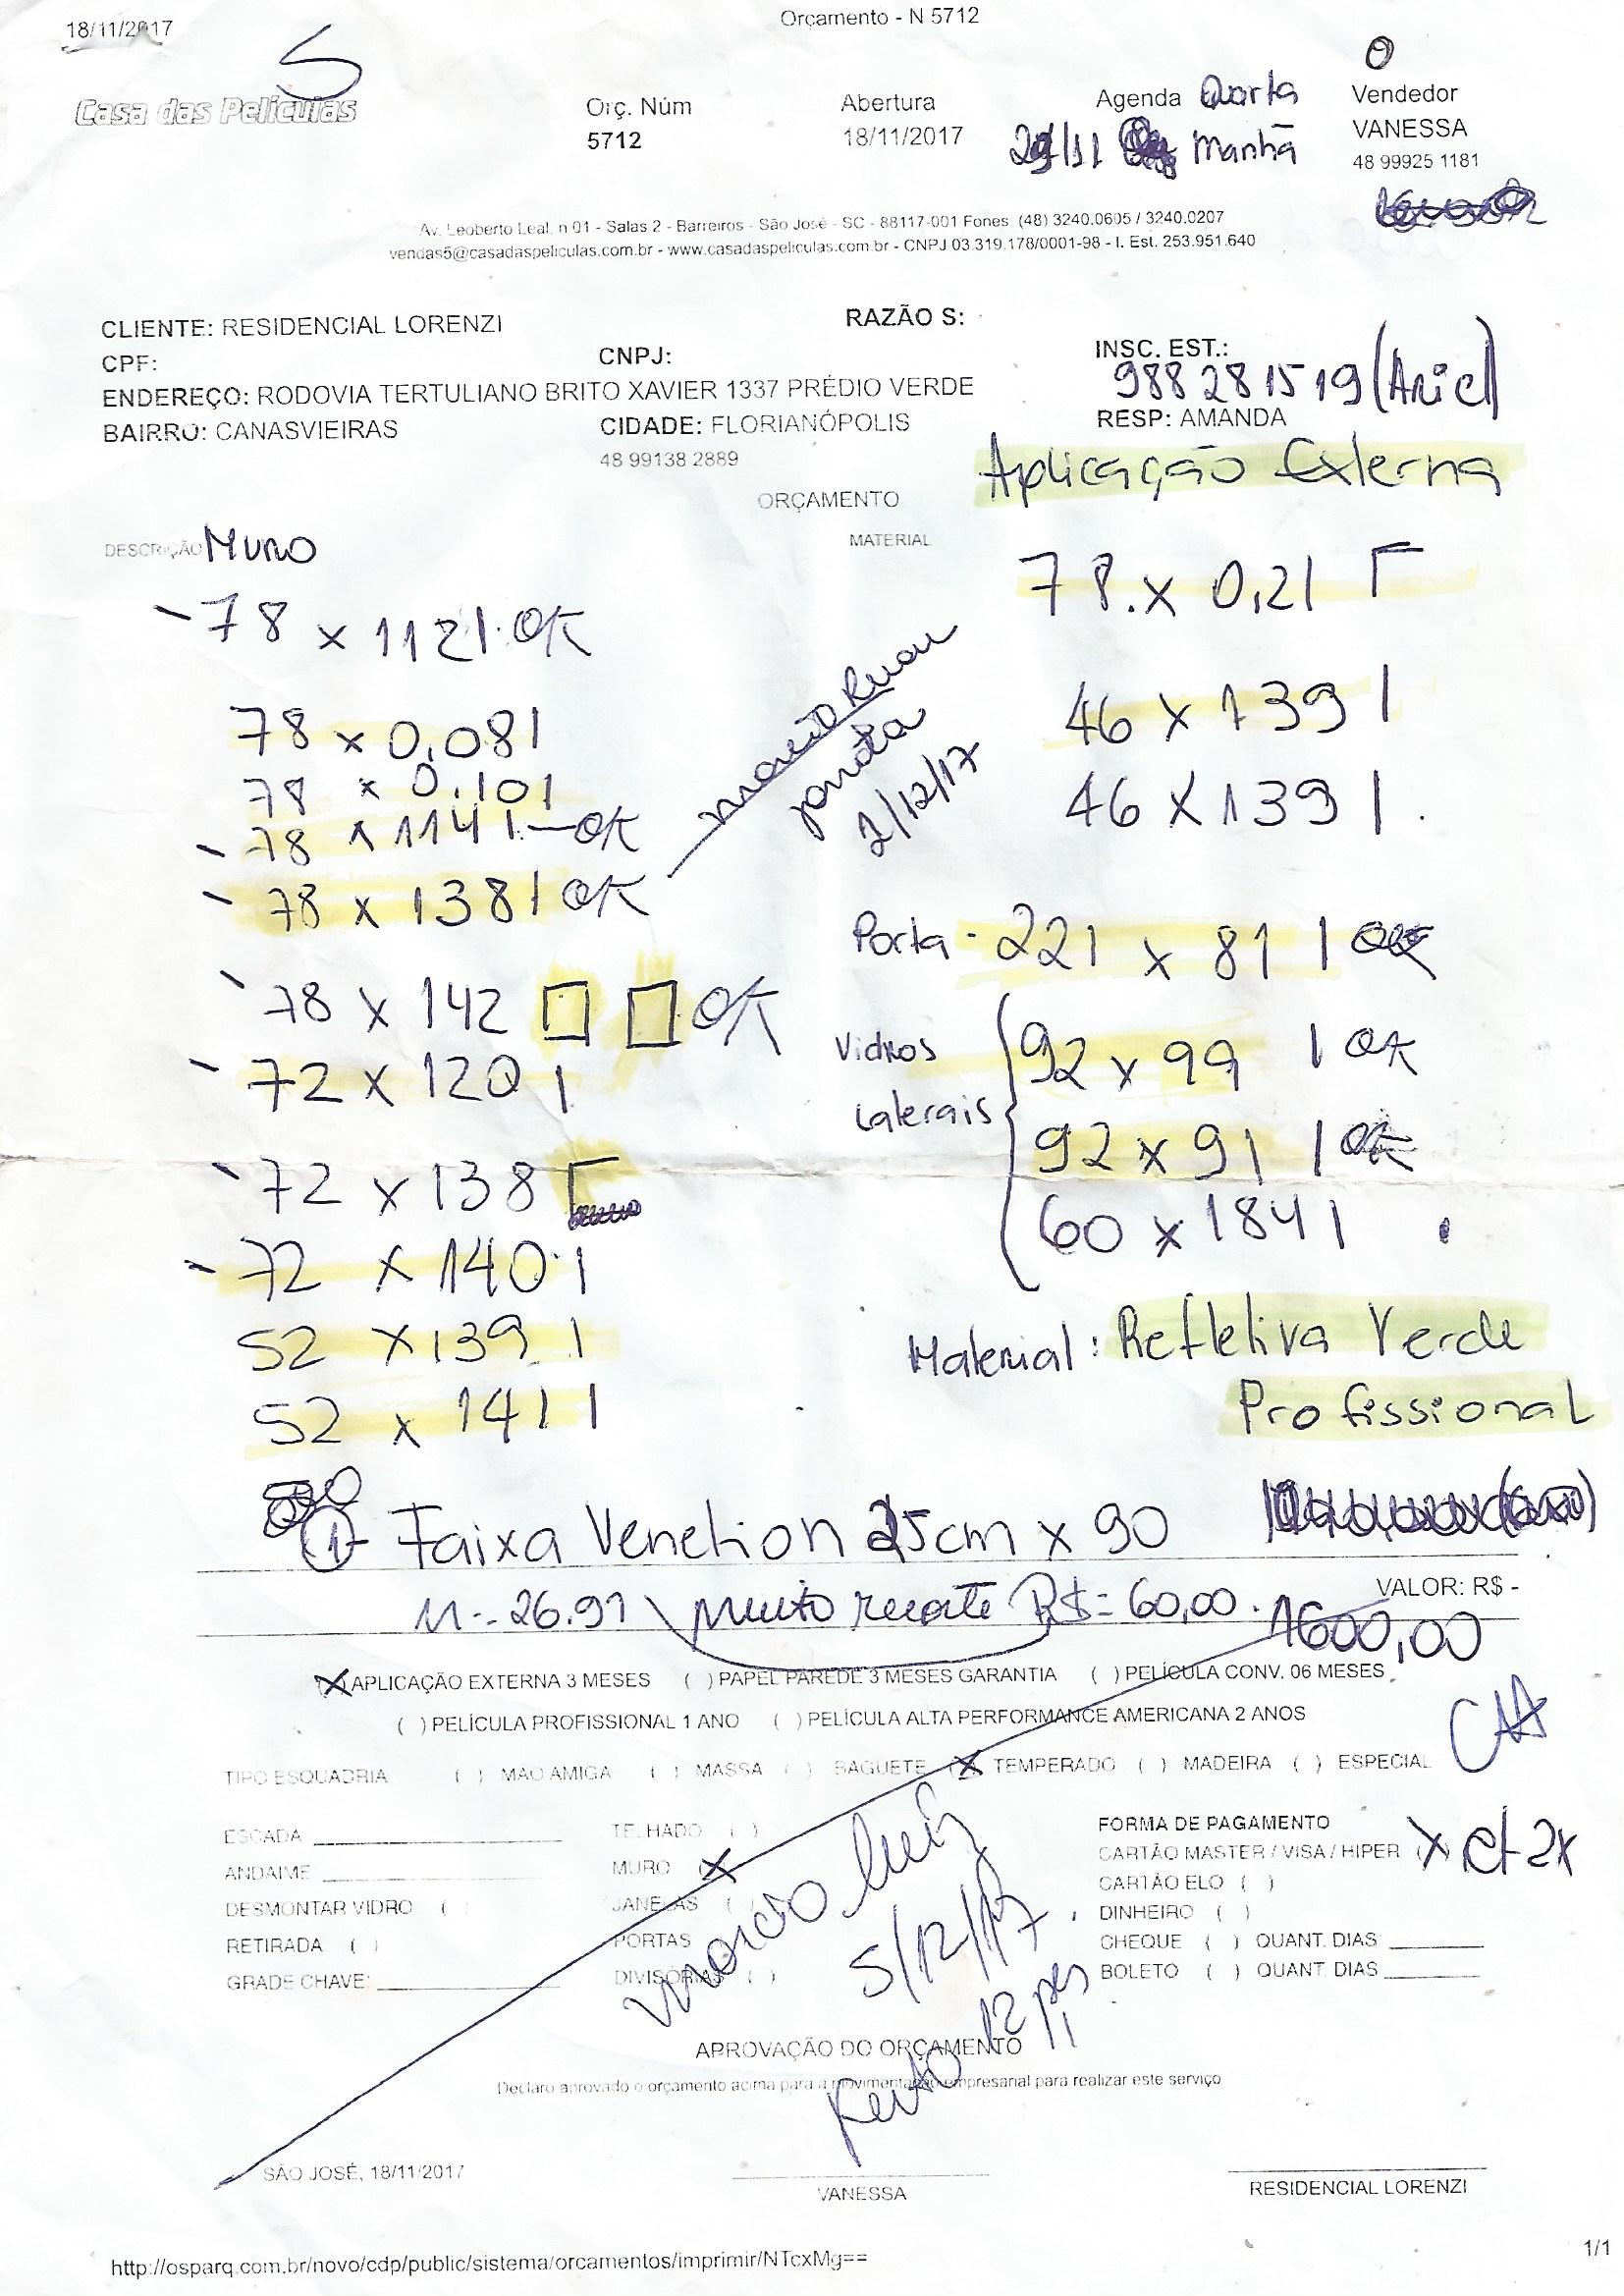 18/11/2017
Orçamento - N 5712
5
0
Casa das Películas
Orç. Núm
5712
Abertura
18/11/2017
Agenda Quarta
29/11 Manhã
Vendedor
VANESSA
48 99925 1181
Av. Leoberto Leal, n 01 - Salas 2 - Barreiros - São José - SC - 88117-001 Fones: (48) 3240.0605 / 3240.0207
vendas5@casadaspeliculas.com.br - www.casadaspeliculas.com.br - CNPJ 03.319.178/0001-98 - I. Est. 253.951.640
CLIENTE: RESIDENCIAL LORENZI
RAZÃO S:
CPF:
CNPJ:
INSC. EST.:
988281519 (Ariel)
ENDEREÇO: RODOVIA TERTULIANO BRITO XAVIER 1337 PRÉDIO VERDE
BAIRRO: CANASVIEIRAS
CIDADE: FLORIANÓPOLIS
RESP: AMANDA
48 99138 2889
Aplicação Externa
ORÇAMENTO
DESCRIÇÃO Muro
MATERIAL
- 78 x 112 | OK
78 x 0,08 |
78 x 0,10 |
- 78 x 114 | - OK
- 78 x 138 | OK
- 78 x 142 □ □ OK
- 72 x 120 |
- 72 x 138 Γ
- 72 x 140 |
52 x 139 |
52 x 141 |
2/12/17
78 x 0,21 Γ
46 x 139 |
46 x 139 |
Porta - 221 x 81 | OK
Vidros
Laterais
92 x 99 | OK
92 x 91 | OK
60 x 184 |
Material: Refletiva Verde
Profissional
1- Faixa Venetion 25cm x 90
M - 26.91 muito recorte R$ = 60,00.
VALOR: R$ -
1600,00
(X) APLICAÇÃO EXTERNA 3 MESES ( ) PAPEL PAREDE 3 MESES GARANTIA ( ) PELÍCULA CONV. 06 MESES
( ) PELÍCULA PROFISSIONAL 1 ANO ( ) PELÍCULA ALTA PERFORMANCE AMERICANA 2 ANOS
TIPO ESQUADRIA ( ) MAO AMIGA ( ) MASSA ( ) BAGUETE (X) TEMPERADO ( ) MADEIRA ( ) ESPECIAL
ESCADA
ANDAIME
DESMONTAR VIDRO ( )
RETIRADA ( )
GRADE CHAVE:
TELHADO ( )
MURO (X)
JANELAS ( )
PORTAS
DIVISÓRIAS ( )
FORMA DE PAGAMENTO
CARTÃO MASTER / VISA / HIPER (X) ct 2x
CARTÃO ELO ( )
DINHEIRO ( )
CHEQUE ( ) QUANT. DIAS
BOLETO ( ) QUANT. DIAS
Marcio Luiz
5/12/17
12 pçs
APROVAÇÃO DO ORÇAMENTO
Declaro aprovado o orçamento acima para a movimentação empresarial para realizar este serviço
SÃO JOSÉ, 18/11/2017
VANESSA
RESIDENCIAL LORENZI
http://osparq.com.br/novo/cdp/public/sistema/orcamentos/imprimir/NTcxMg==
1/1